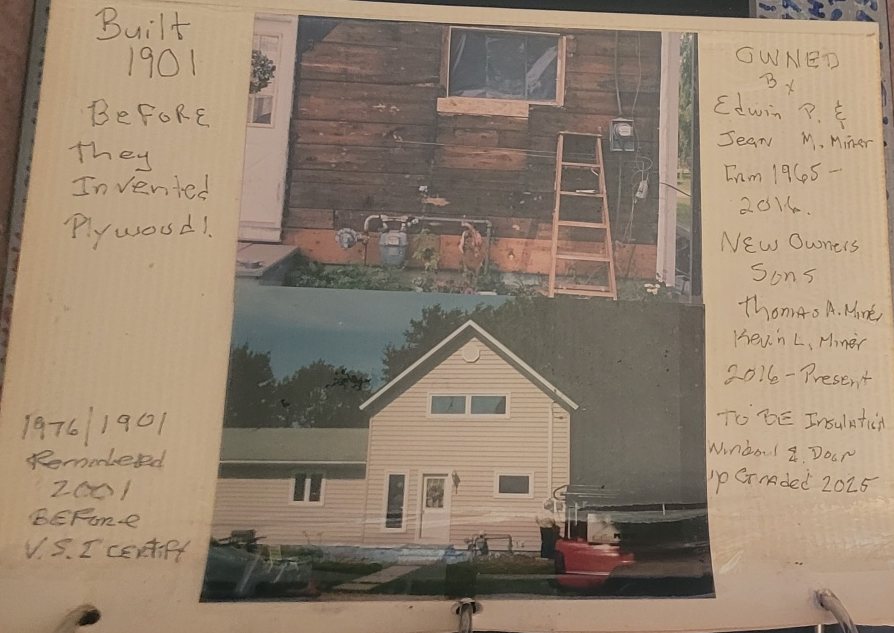 Built
1901
BeFORE
they
Invented
Plywood!
1976/1901
Remodeled
2001
BEFore
V.S.I certify
OWNED
By
Edwin P. &
Jean M. Miner
From 1965-
2016.
NEW Owners
Sons
Thomas A. Miner
Kevin L. Miner
2016-Present
TO BE Insulation
Windows & Door
up Graded 2025